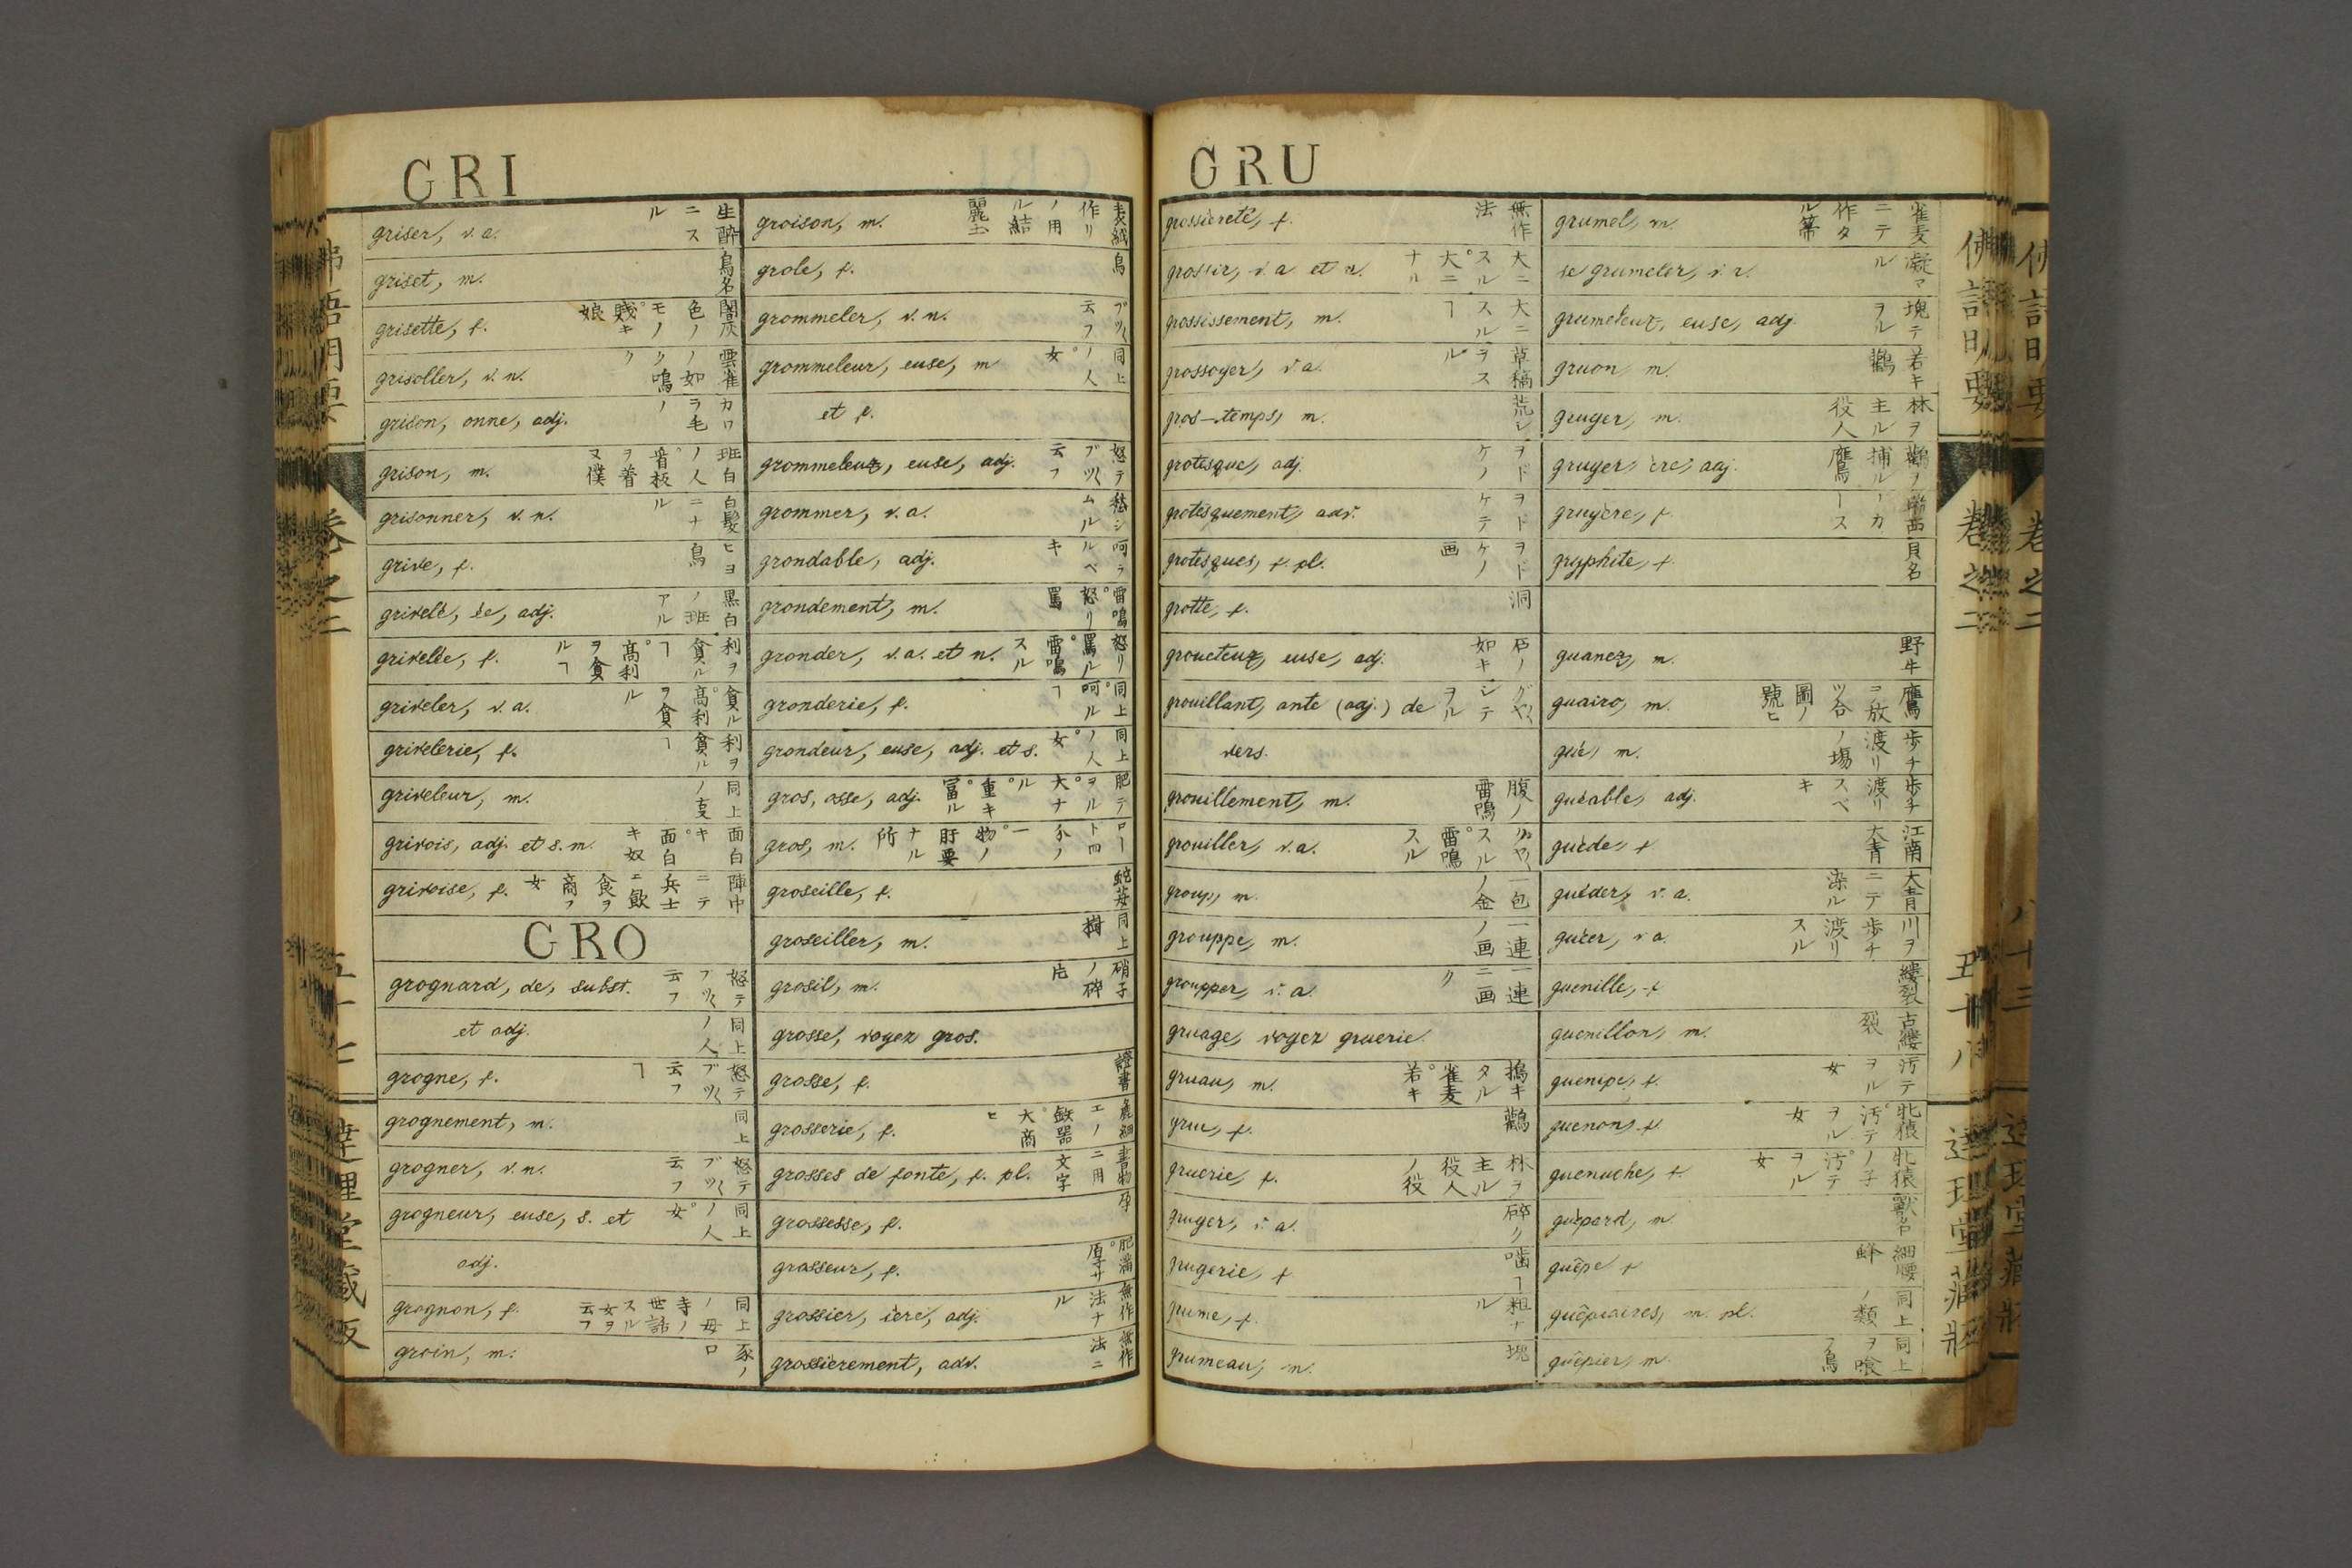 GRI
griser, v. a. 生酔ニスル
griset, m. 鳥名
grisette, f. 闇灰色ノモノ。賎キ娘
grisoller, v. n. 雲雀ノ如ク鳴ク
grison, onne, adj. カワラ毛ノ
grison, m. 班白ノ人。
grisonner, v. n. 白髮ニナル
grive, f. ヒヨ鳥
grivelé, ée, adj. 黒白ノ班アル
grivelée, f. 利ヲ貪ルヿ。高利ヲ貪ルヿ
griveler, v. a. 貪ル。高利ヲ貪ル
grivelerie, f. 利ヲ貪ルヿ
griveleur, m. 同上ノ
grivois, adj. et s. m. 面白キ。面白キ奴
grivoise, f. 陣中ニテ兵士ニ飲食ヲ商フ女
GRO
grognard, de, subst. 怒テブツ〱云フ
et adj. 同上ノ人
grogne, f. 怒テブツ〱云フヿ
grognement, m. 同上
grogner, v. n. 怒テブツ〱云フ
grogneur, euse, s. et 同上ノ人。女
adj.
grognon, f. 同上ノ母寺ノ世話スル女ヲ云フ
groin, m. 豕ノ口
groison, m.
grole, f. 鳥
grommeler, v. n. ブツ〱云フ
grommeleur, euse, m 同上ノ人。女
et f.
grommeleux, euse, adj. 怒テブツ〱云フ
grommer, v. a. 愁シムル
grondable, adj. 呵ラルベキ
grondement, m. 雷鳴。怒リ罵
gronder, v. a. et n. 怒リ罵ル。雷鳴スル
gronderie, f. 同上。呵ルヿ
grondeur, euse, adj. et s. 同上ノ人。女
gros, osse, adj. 肥テヲル。大ナル。重キ。冨ル
gros, m. 物ノ肝要ナル所
groseille, f.
groseiller, m. 同上樹
grosil, m. 硝子ノ碎片
grosse, voyez gros.
grosse, f. 證書
grosserie, f.
grosses de fonte, f. pl. 書物ニ用文字
grossesse, f. 孕
grosseur, f. 肥滿。厚サ
grossier, ière, adj. 無作法ナル
grossièrement, adv. 無作法ニ
GRU
grossièreté, f. 無作法
grossir, v. a. et n. 大ニスル。大ニナル
grossissement, m. 大ニスルヿ
grossoyer, v. a. 草稿ヲスル
gros-temps, m. 荒シ
grotesque, adj. ヲドケノ
grotesquement, adv. ヲドケテ
grotesques, f. pl. ヲドケノ画
grotte, f. 洞
groueteux, euse, adj. 石ノ如キ
grouillant, ante (adj.) de グヤ〱シテヲル
vers.
grouillement, m. 腹ノ雷鳴
grouiller, v. a. グヤ〱スル。雷鳴スル
group, m. 一包ノ金
grouppe, m. 一連ノ画
groupper, v. a. 一連ニ画ク
gruage, voyez gruerie
gruau, m. 搗キタル雀麦。若キ
grue, f. 鸛
gruerie, f. 林ヲ主ル役人ノ役
gruger, v. a. 碎ク
grugerie, f 噛ヿ
grume, f. 粗ナル
grumeau, m. 塊
grumel, m. 雀麦ニテ作タル箒
se grumeler, v. r. 凝マル
grumeleux, euse, adj. 塊テヲル
gruon, m. 若キ鸛
gruyer, m. 林ヲ主ル役人
gruyer, ère, adj. 鸛ノ捕ル鷹
gruyère, f.
gryphite, f. 貝名
guanez, m. 野牛
guairo, m. 鷹ヲ放ツ合圖ノ號ヒ
gué, m. 歩チ渡リノ場
guéable, adj. 歩チ渡リスベキ
guède, f. 江南大青
guéder, v. a. 大青ニテ染ル
guéer, v a. 川ヲ歩チ渡リスル
guenille, f 縷裂
guenillon, m. 古縷裂
guenipe, f. 汚テヲル女
guenon, f. 牝猿。汚テヲル女
guenuche, f. 牝猿ノ子。汚テヲル女
guépard, m. 獸名
guêpe, f 細腰蜂
guêpiaires, m. pl. 同上ノ類
guêpier, m. 同上ヲ喰フ鳥
佛語明要 卷之二 五十八 達理堂藏版